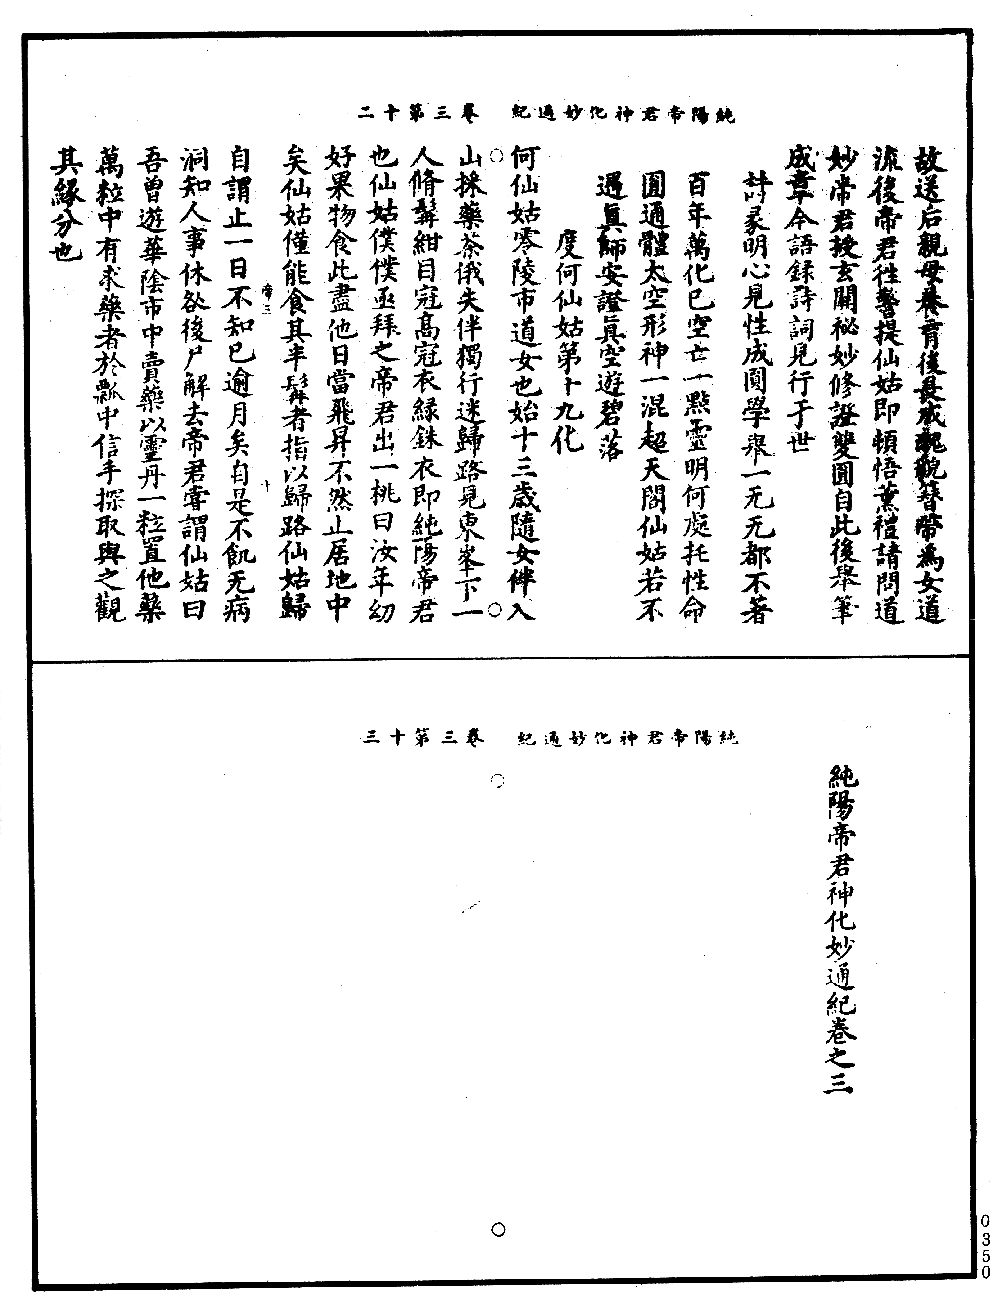 純陽帝君神化妙通紀　卷三第十二
故送后親母養育後長成醜貌簪幣為女道
流後帝君徃警提仙姑即頓悟薰禮請問道
妙帝君授玄關祕妙修證雙圓自此後舉筆
成章今語錄詩詞見行于世
詩彖明心見性成圓學舉一无无都不著
百年萬化已空亡一點靈明何處托性命
圓通體太空形神一混超天閣仙姑若不
遇眞師安證眞空遊碧落
度何仙姑第十九化
何仙姑零陵市道女也始十三歲隨女伴入
山採藥茶俄失伴獨行迷歸路見東峯下一
人脩髯紺目冠高冠衣綠銖衣即純陽帝君
也仙姑僕僕亟拜之帝君出一桃曰汝年幼
好果物食此盡他日當飛昇不然止居地中
矣仙姑僅能食其半髯者指以歸路仙姑歸
帝三
十
自謂止一日不知已逾月矣自是不飢无病
洞知人事休咎後尸解去帝君嘗謂仙姑曰
吾曾遊華陰市中賣藥以靈丹一粒置他藥
萬粒中有求藥者於瓢中信手探取與之觀
其緣分也
純陽帝君神化妙通紀　卷三第十三
純陽帝君神化妙通紀卷之三
0350